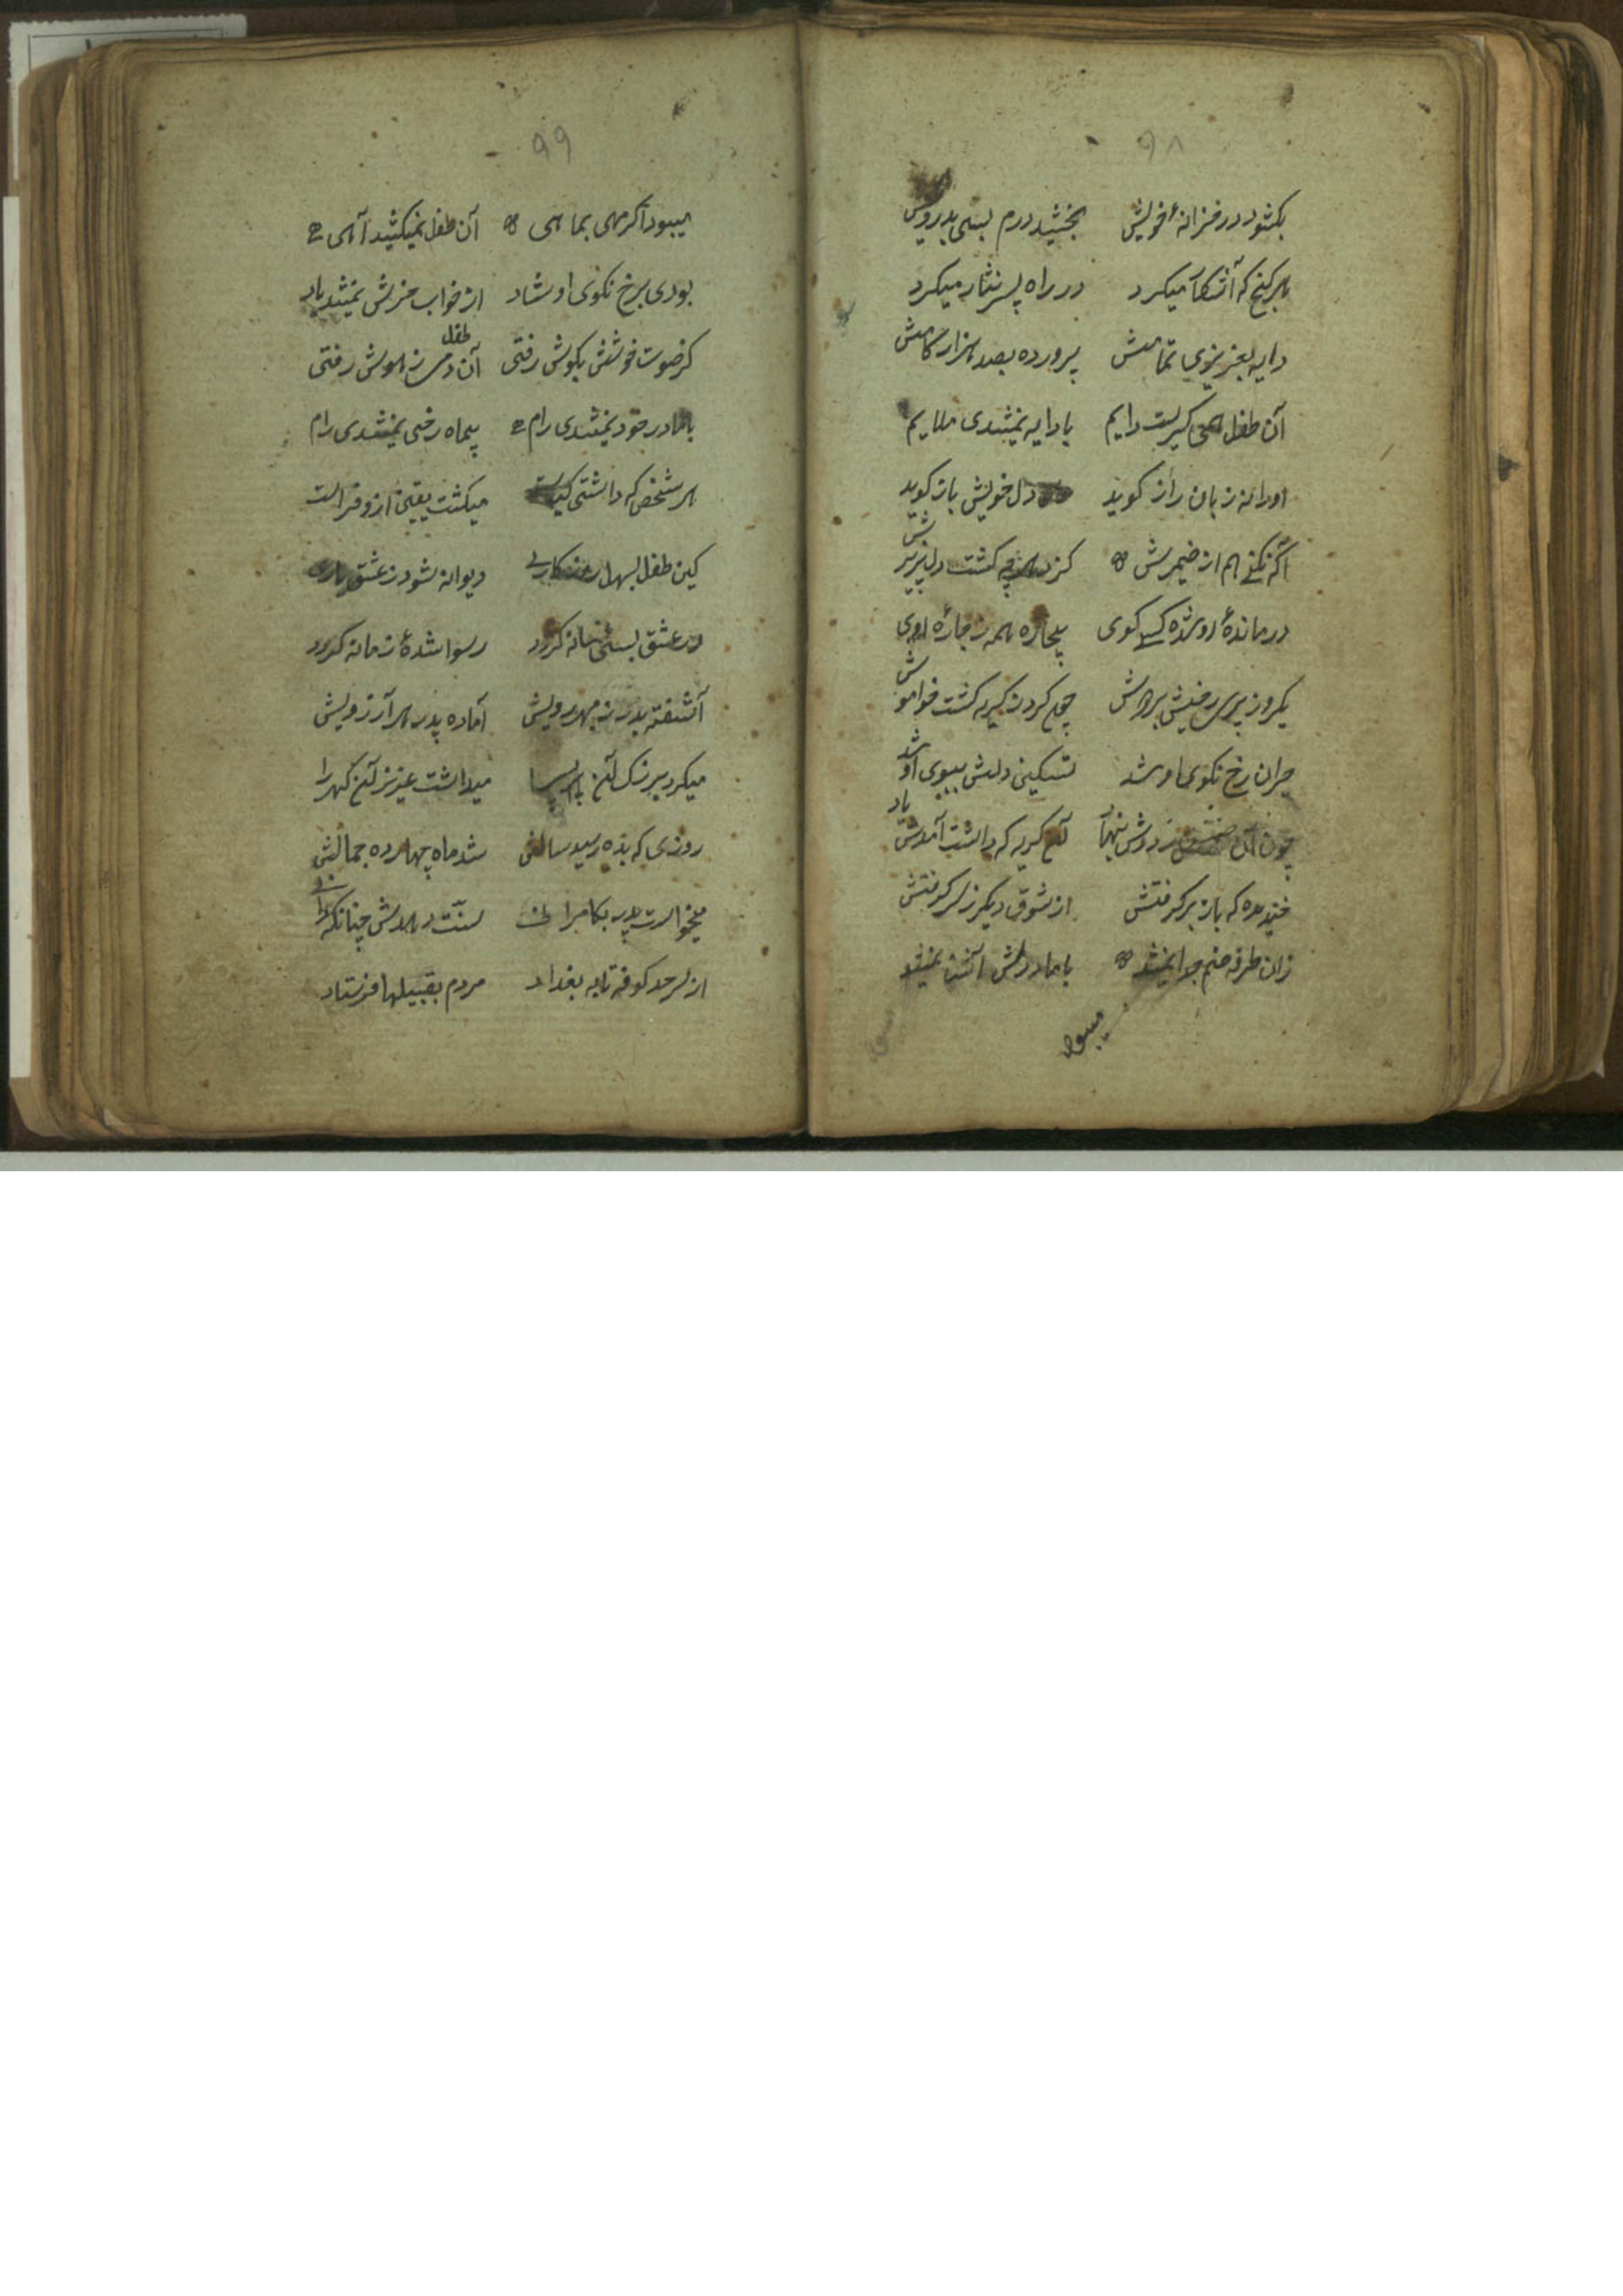 ۹۸
بکشود در خزانهٔ خویش بخشید درم بسی بدرویش
هر کنج که آشکار میکرد در راه پسر نثار میکرد
دایه بعزیزی تمامش پرورده بصد هزار کامش
آن طفل همی گریست دایم با دایه نمیشدی ملایم
اورا نه زبان راز گوید دل خویش باز گوید
آگه نکسی هم از ضمیرش کز چه گشت دلپذیرش
درماندهٔ او شده کسی کوی بیچاره همه ز چارهٔ اوی
یکروز پری رخیش بر دوش چون کرد ز گریه گشت خاموش
حیران رخ نکوی او شد تسکین دلش ببوی او شد
چون آن ز دوش بنهاد آن گریه که داشت آمدش یاد
خندید که باز بر گرفتش از شوق دیگر ز سر گرفتش
زان طرفه صنم جدا نمیشد با مادرش آشنا نمیشد
میبود
۹۹
میبود اگر مهی بماهی آن طفل نمیکشید آهی
بودی برخ نکوی او شاد از خواب خورش نمیشد یاد
کر صوت خوشش بگوش رفتی آن طفل دمی ز هوش رفتی
با مادر خود نمیشدی رام بیماه رخی نمیشدی رام
هر شخص که داشتی کیاست میگشت یقین از و فراست
کین طفل بسهل روزگاری دیوانه شود ز عشق یاری
در عشق بسی فسانه گردد رسوا شدهٔ زمانه گردد
آشفته پدر ز مهر رویش آماده پدر هر آرزویش
میکرد بزرگ آن پسر را میداشت عزیز آن گهر را
روزی که بده رسید سالش شد ماه چهارده جمالش
میخواست پدر بکامرانی سنت دهدش چنانکه دانی
از سرحد کوفه تا به بغداد مردم بقبیلها فرستاد